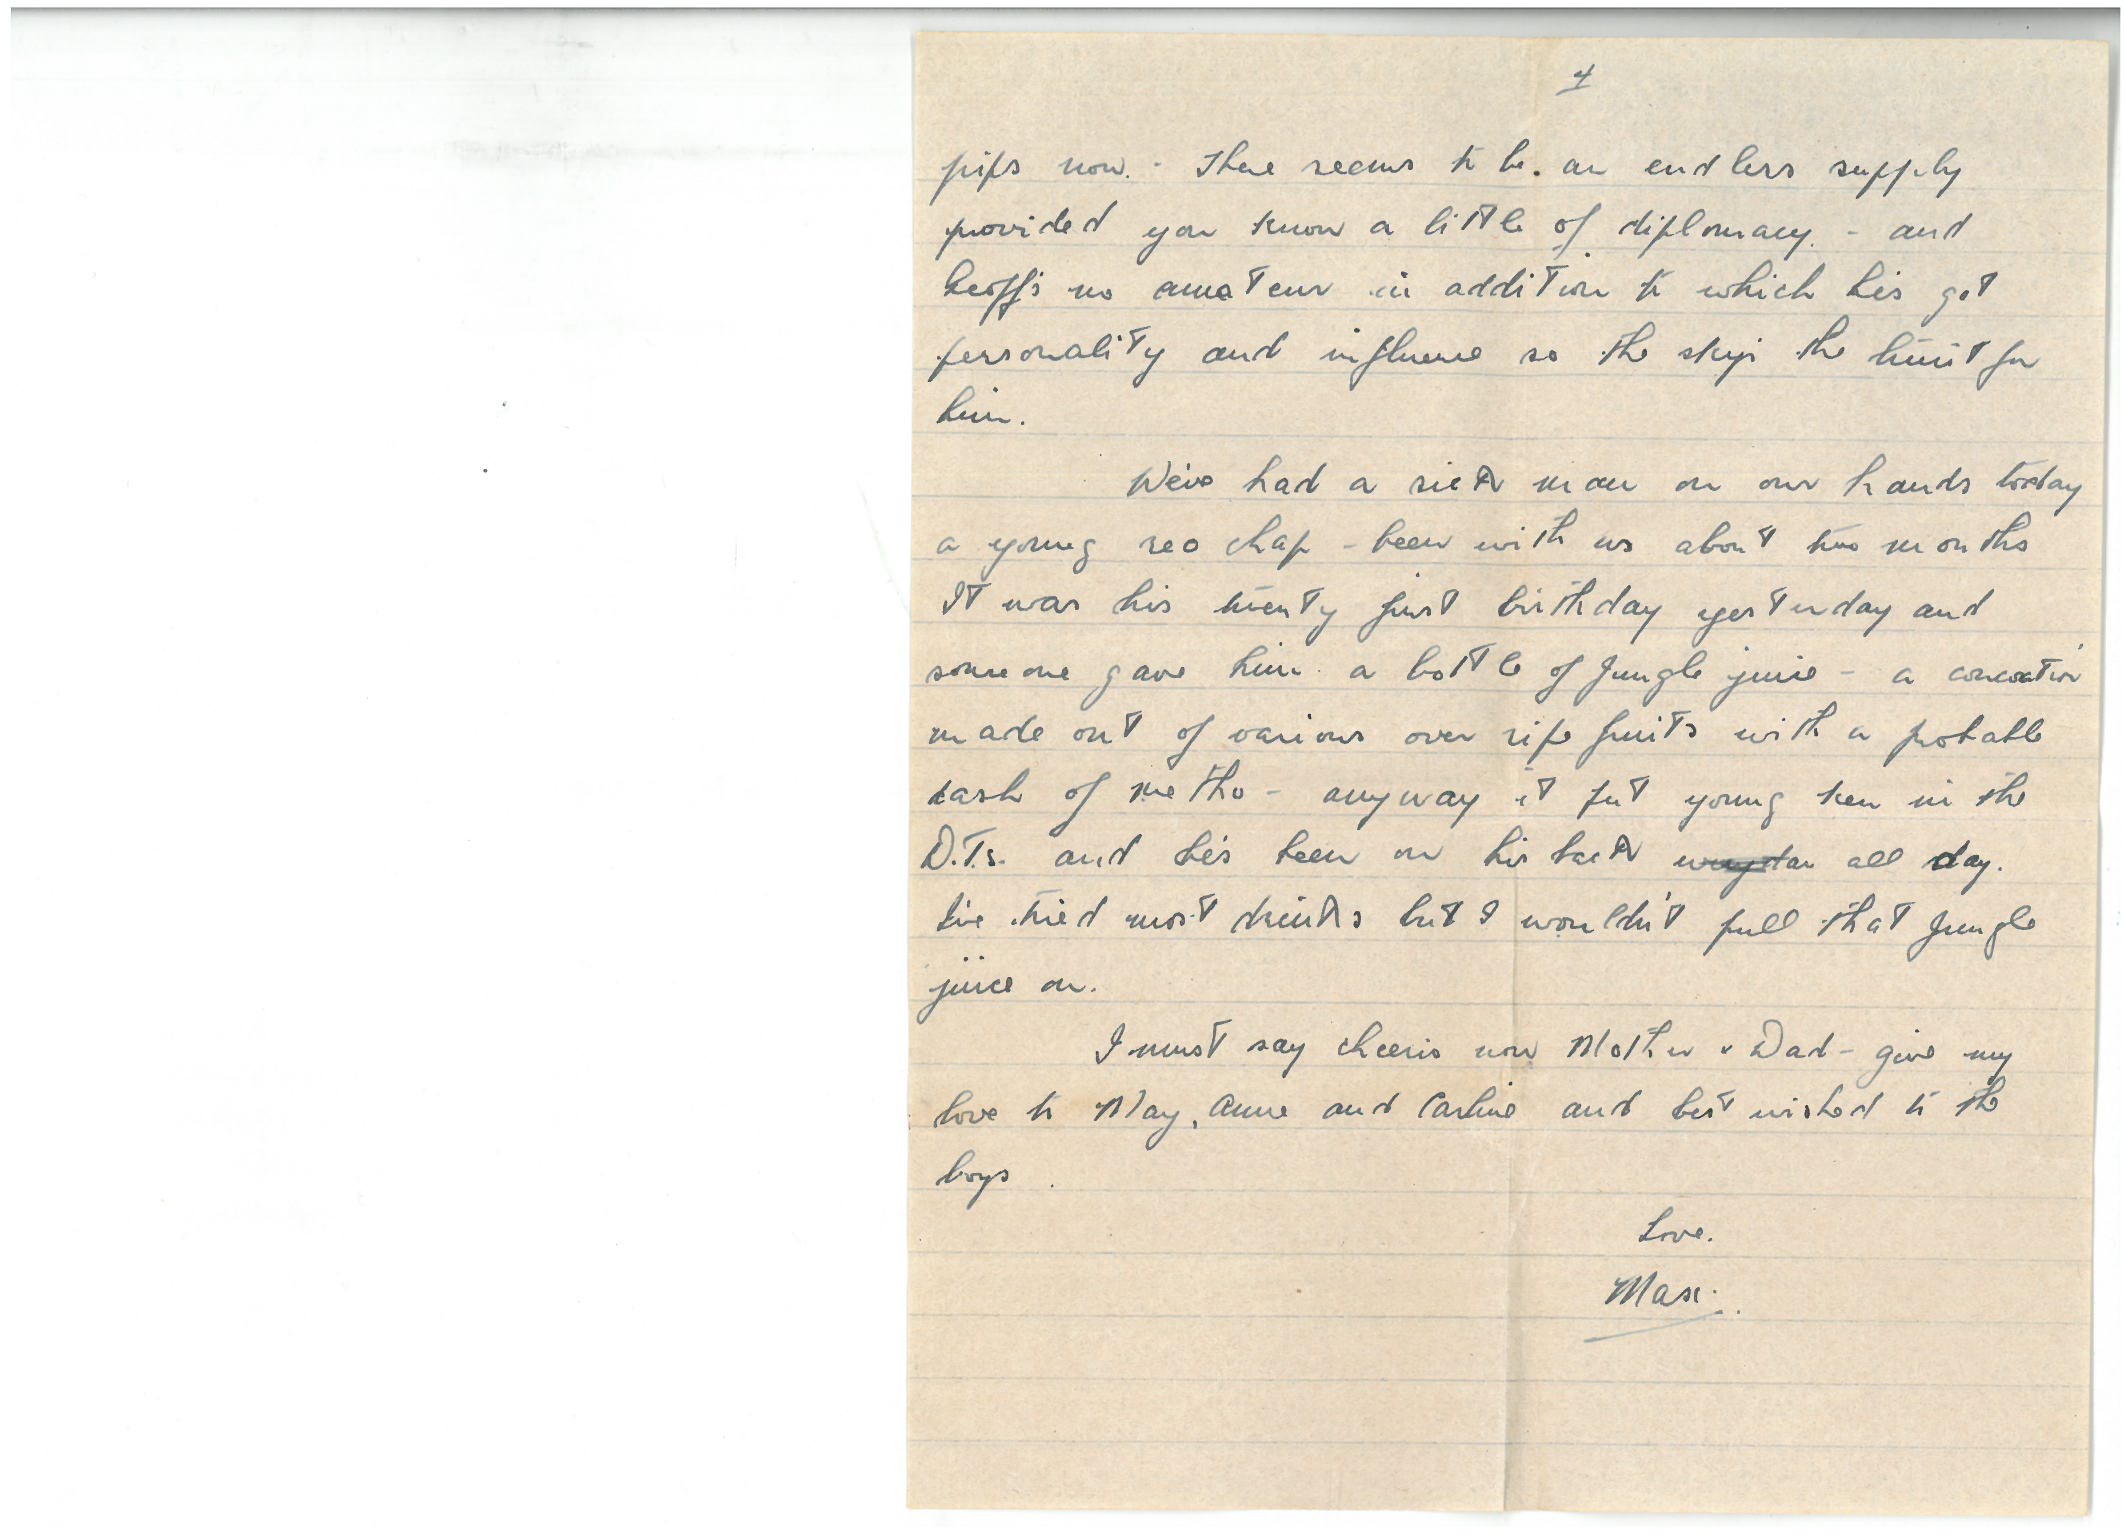 4
pips now. - There seems to be. an endless supply
provided you know a little of diplomacy. - and
Geoff's no amateur in addition to which he's got
personality and influence so the sky's the limit for
him.
We've had a sick man on our hands today
a young reo chap - been with us about two months
It was his twenty first birthday yesterday and
someone gave him a bottle of Jungle juice - a concoction
made out of various over ripe fruits with a probable
dash of metho - anyway it put young Ken in the
D.T.s. and he's been on his back all day.
I've tried most drinks but I wouldn't pull that Jungle
juice on.
I must say cheerio now Mother & Dad - give my
love to May, Anne and Carline and best wished to the
boys.
Love.
Max.